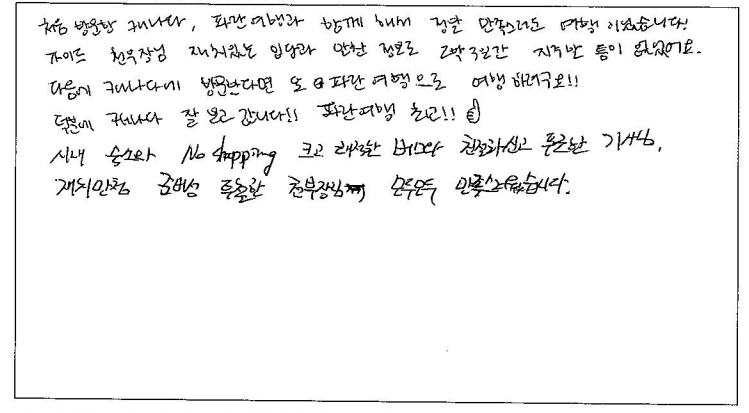 처음 방문한 캐나다, 파란여행과 함께 해서 정말 만족스러운 여행 이었습니다!
가이드 천부장님 재치있는 입담과 알찬 정보로 2박3일간 지루할 틈이 없었어요.
다음에 캐나다에 방문한다면 또 파란여행으로 여행하려구요!!
덕분에 캐나다 잘 보고 갑니다!! 파란여행 최고!!
시내 숙소와 No shopping 크고 쾌적한 버스와 친절하시고 훌륭한 기사님,
재치만점 훌륭한 천부장님 모두모두 만족스러웠습니다.